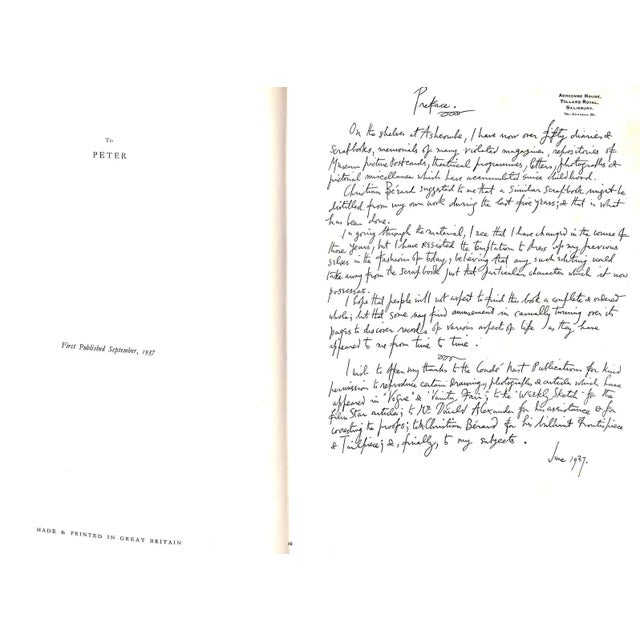 To
PETER
First Published September, 1937
MADE & PRINTED IN GREAT BRITAIN
ASHCOMBE HOUSE,
TOLLARD ROYAL,
SALISBURY.
Preface.
On the shelves at Ashcombe, I have now over fifty diaries &
scrapbooks, memorials of many violated magazines, repositories of
Museum picture postcards, theatrical programmes, letters, photographs &
pictorial miscellanea which have accumulated since childhood.
Christian Bérard suggested to me that a similar scrapbook might be
distilled from my own work during the last five years; & that is what
has been done.
In going through the material, I see that I have changed in the course of
those years, but I have resisted the temptation to dress up my previous
selves in the fashions of today, believing that any such shifting would
take away from the scrapbook just that particular character which it now
possesses.
I hope that people will not expect to find the book a complete & ordered
whole; but that some may find amusement in casually turning over its
pages to discover records of various aspects of life as they have
appeared to me from time to time.
I wish to offer my thanks to the Condé Nast Publications for kind
permission to reproduce certain drawings, photographs & articles which have
appeared in 'Vogue' & 'Vanity Fair'; to the 'Weekly Sketch' for the
film Star articles; to Mr. Donald Alexander for his assistance & for
correcting the proofs; to Christian Bérard for his brilliant frontispiece
& Tailpiece; &, finally, to my subjects.
June 1937.